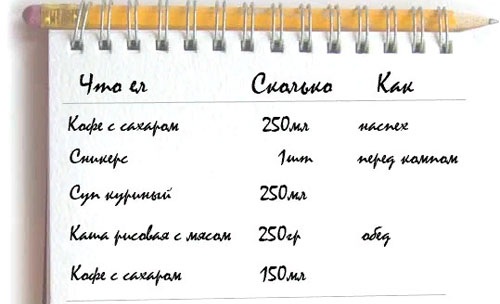 Что ел Сколько Как
Кофе с сахаром 250мл наспех
Сникерс 1шт перед компом
Суп куриный 250мл
Каша рисовая с мясом 250гр обед
Кофе с сахаром 150мл